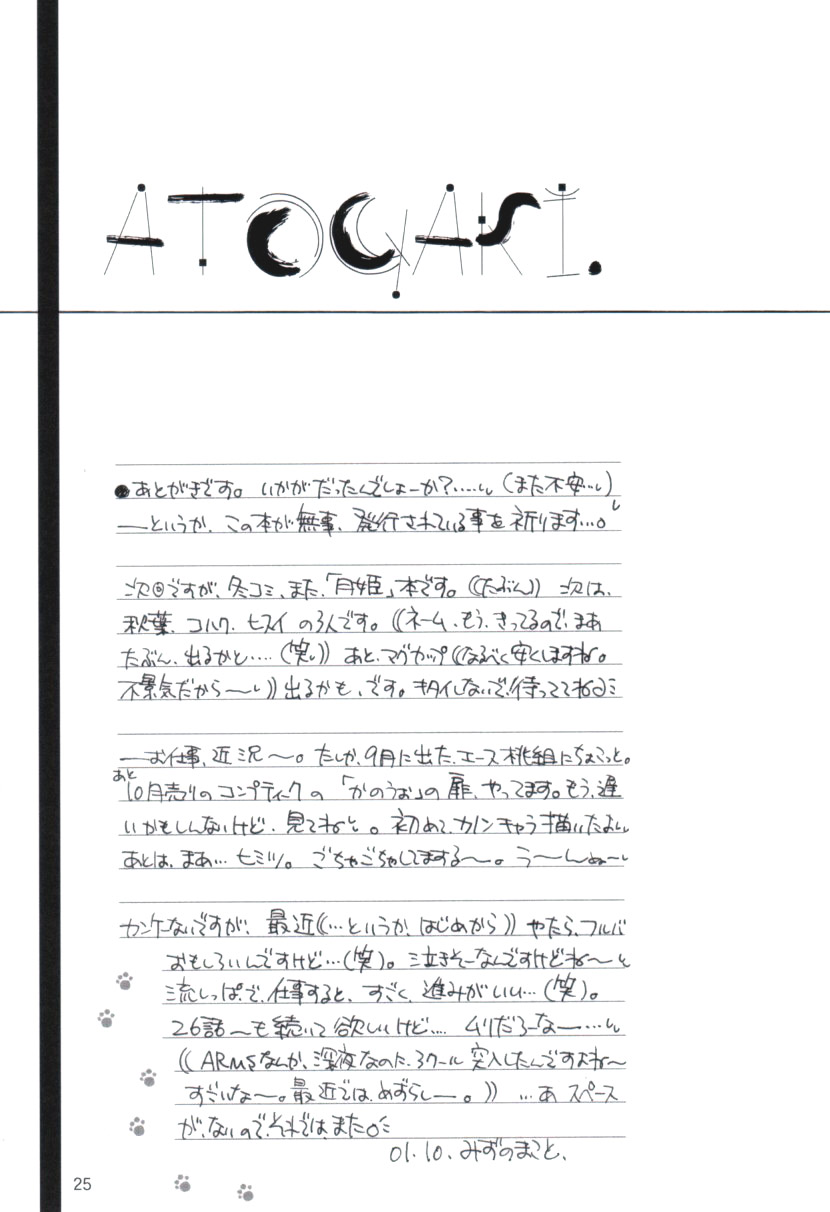 ATOGAKI.
●あとがきです。いかがだったんでしょーか?……(また不安…)
―というか、この本が無事、発行されている事を祈ります…。
次回ですが、冬コミ、また、「月姫」本です。((たぶん)) 次は、
秋葉、コハク、ヒスイの3人です。((ネーム、もう、きってるので、まあ
たぶん、出るかと…(笑)) あと、マグカップ((なるべく安くしますね。
不景気だから〜)) 出るかも、です。キタイしないで、待っててね
―お仕事、近況〜。たしか、9月に出た、エース桃組にちょこっと。
あと
10月売りのコンプティークの「かのうぉ」の扉、やってます。もう、遅
いかもしんないけど、見てねと。初めて、カノンキャラ描いたよ
あとは、まあ…ヒミツ。ごちゃごちゃしてまする〜。う〜んぬ〜
カンケーないですが、最近((…というか、はじめから)) やたら、フルバ
おもしろいんですけど…(笑)。泣きそーなんですけどね〜と
流しっぱで、仕事すると、すごく、進みがいい…(笑)。
26話〜も続いて欲しいけど…ムリだろーなー…
((ARMSなんか、深夜なのに、3クール突入したんですよね〜
すごいな〜。最近では、めずらしー。)) …あ スペース
が、ないので、それでは、また。
01.10.みずのまこと、
25